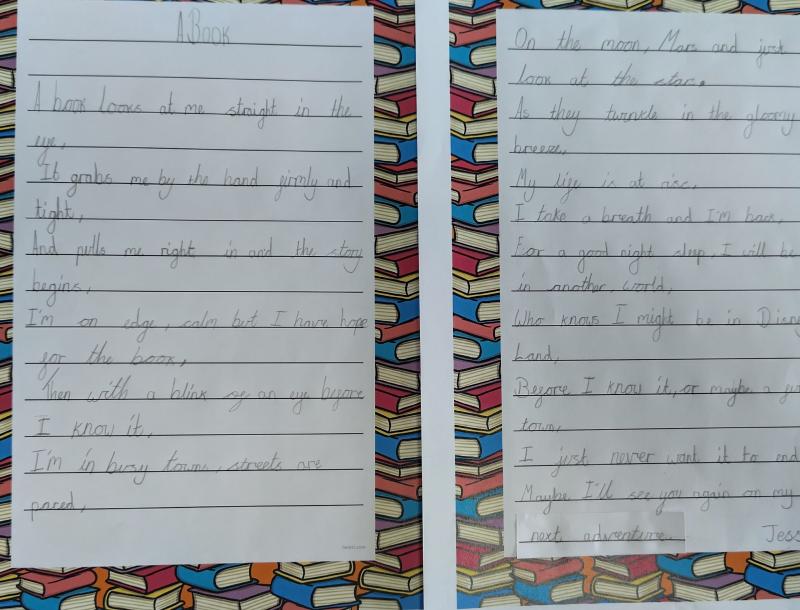 A BOOK
A book looks at me straight in the
eye,
It grabs me by the hand firmly and
tight,
And pulls me right in and the story
begins,
I'm on edge, calm but I have hope
for the book,
Then with a blink of an eye before
I know it,
I'm in busy town, streets are
paced,
On the moon, Mars and just
look at the stars.
As they twinkle in the gloomy
breeze,
My life is at risc,
I take a breath and I'm back,
For a good night sleep, I will be
in another, world,
Who knows I might be in Disney
Land,
Before I know it, or maybe a
town,
I just never want it to end
Maybe I'll see you again on my
next adventure.
Jess